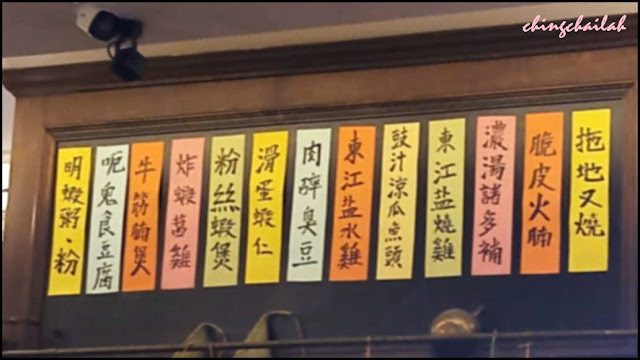 chingchailah
拖地叉燒
脆皮火腩
濃湯諸多補
東江盐燒雞
豉汁涼瓜魚頭
東江盐水雞
肉碎臭豆
滑蛋蝦仁
粉絲蝦煲
炸蝦雞
牛筋腩煲
呃鬼食豆腐
明蝦粥、粉